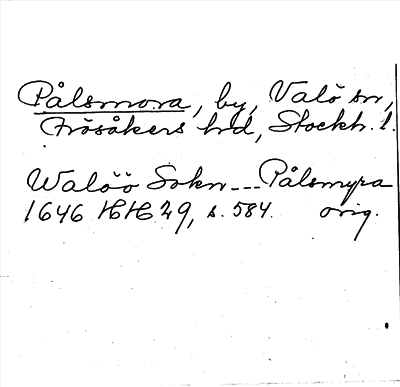 Pålsmora, by, Valö sn,
Frösåkers hd, Stockh. l.
Walöö Sokn --- Pålsmyra
1646 HH 29, s. 584. orig.